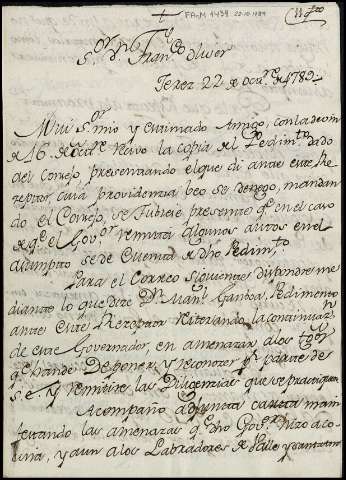 FA-M 4439 22-10-1789
S.or D.n Fran.co Oliver
Xerez 22 de Oct.re de 1789
Mui S.or mio y estimado Amigo, con la de Vm
de 16 del recivo la copia del Pedim.to dado
del Consejo presentando el que di ante este Re-
zeptor, cuia providenzia veo se denego, mandan
do el Consejo, se tubiese presente q.e en el caso
de q.e el Gov.or remita algunos autos en el
asumpto se de Cuenta de dho Pedim.to
Para el Correo siguiente dispondre me
diante lo que dize D.n Man.l Gamboa, Pedimento
ante este Rezeptor Reiterando la continuaz.n
de este Governador, en amenazar a los
q.e han de Deponer, y reconozer p.r parte de
S. E. y remitire las Diligenzias que se practiquen
Acompaño adjunta carta mani
festando las amenazas q.e dho Gov.or hizo a
y aun a los Labradores de Valle y Santa